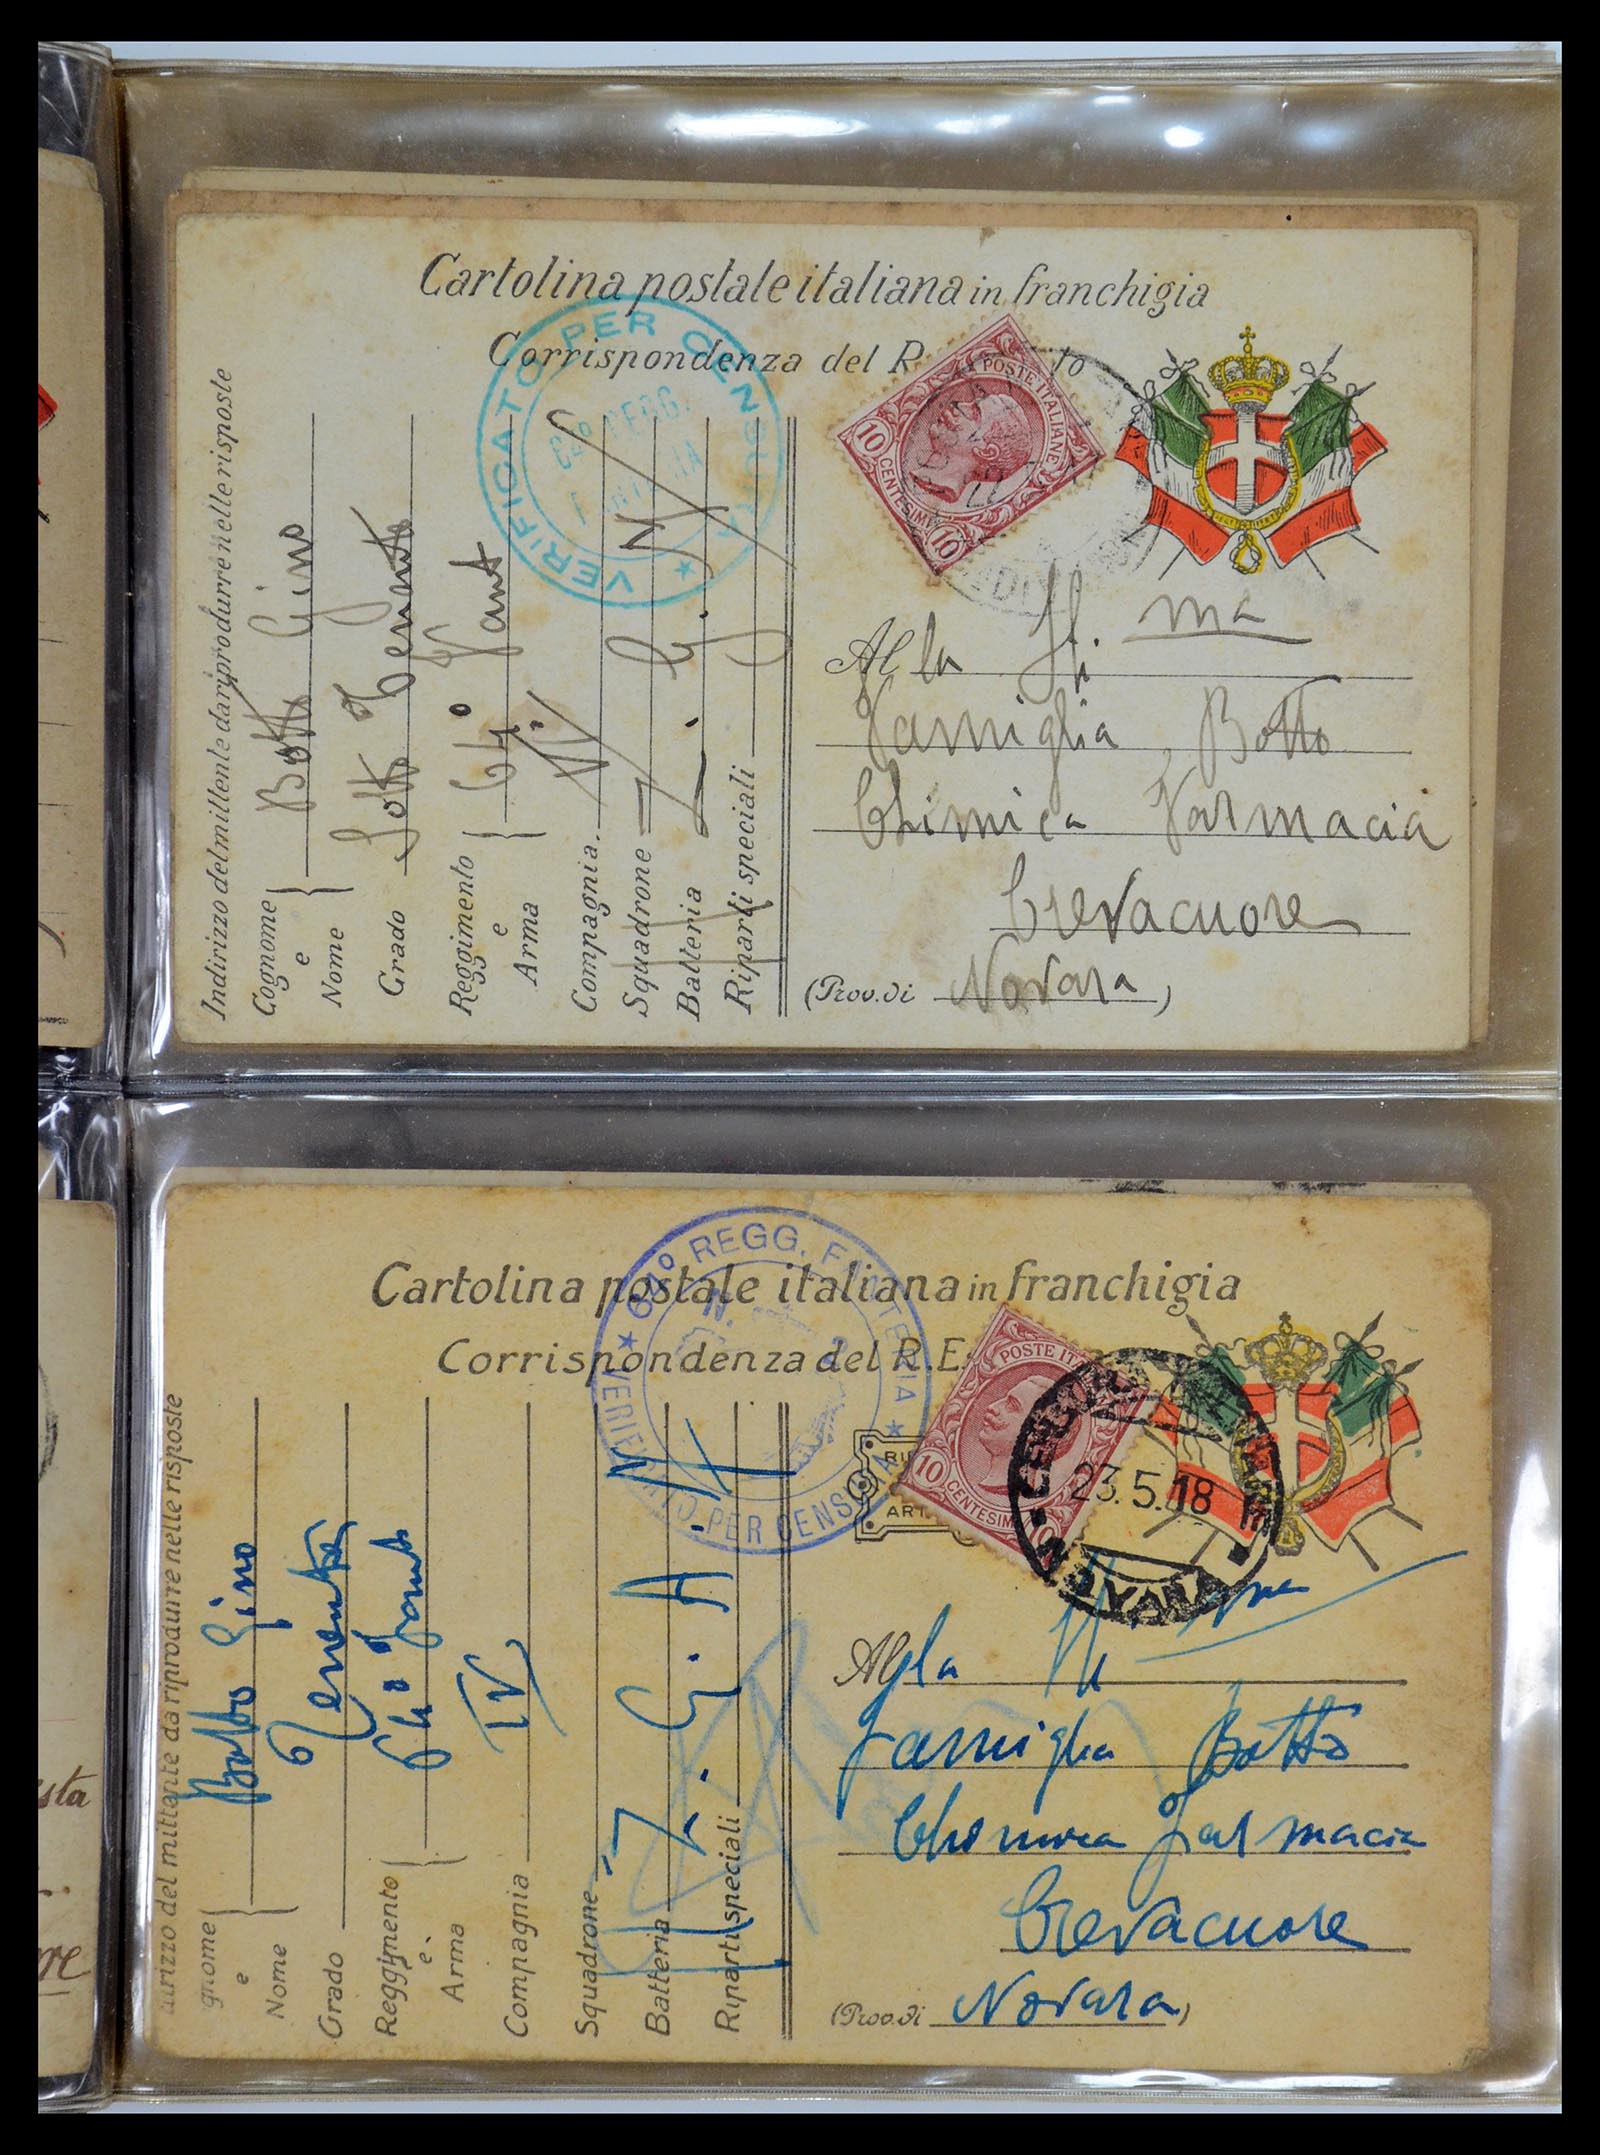 Cartolina postale italiana in franchigia
Corrispondenza del R. to
VERIFICATO PER CENSURA
POSTE ITALIANE
10 CENTESIMI 10
Indirizzo del mittente da riprodurre nelle risposte
Cognome e Nome Botto Gino
Grado Sotto Tenente
Reggimento e Arma 64° Fant
Compagnia
Squadrone
Batteria
Riparti speciali
Z. G. N
Alla
ma
Famiglia Botto
Chimica Farmacia
Crevacuore
(Prov. di Novara)
Cartolina postale italiana in franchigia
Corrispondenza del R. E
64° REGG. FANTERIA
VERIFICATO PER CENSURA
POSTE ITA
10 CENTESIMI
23.5.18
ART
Indirizzo del mittente da riprodurre nelle risposte
gnome e Nome Botto Gino
Grado Tenente
Reggimento e Arma 64° Fant
Compagnia IV
Squadrone
Batteria
Riparti speciali
Alla
ma
Famiglia Botto
Farmacia
Crevacuore
(Prov. di Novara)
sta
re